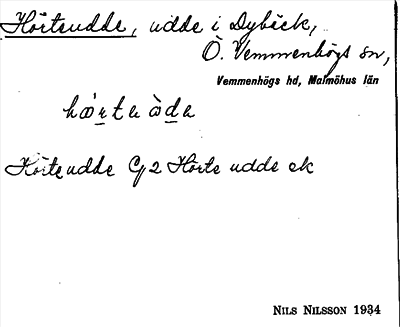 Hörteudde, udde i Dybäck,
Ö. Vemmenhögs sn,
Vemmenhögs hd, Malmöhus län
Hörteudde Hörte udde ek
NILS NILSSON 1934